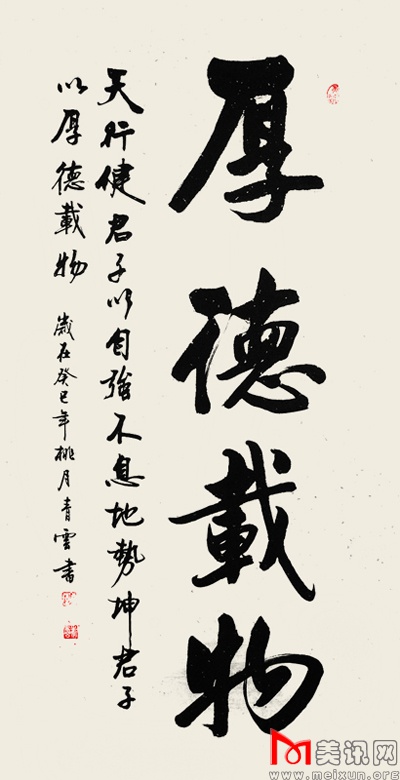 厚德載物
天行健君子以自強不息地勢坤君子
以厚德載物
歲在癸巳年桃月青雲書
美讯网
www.meixun.org